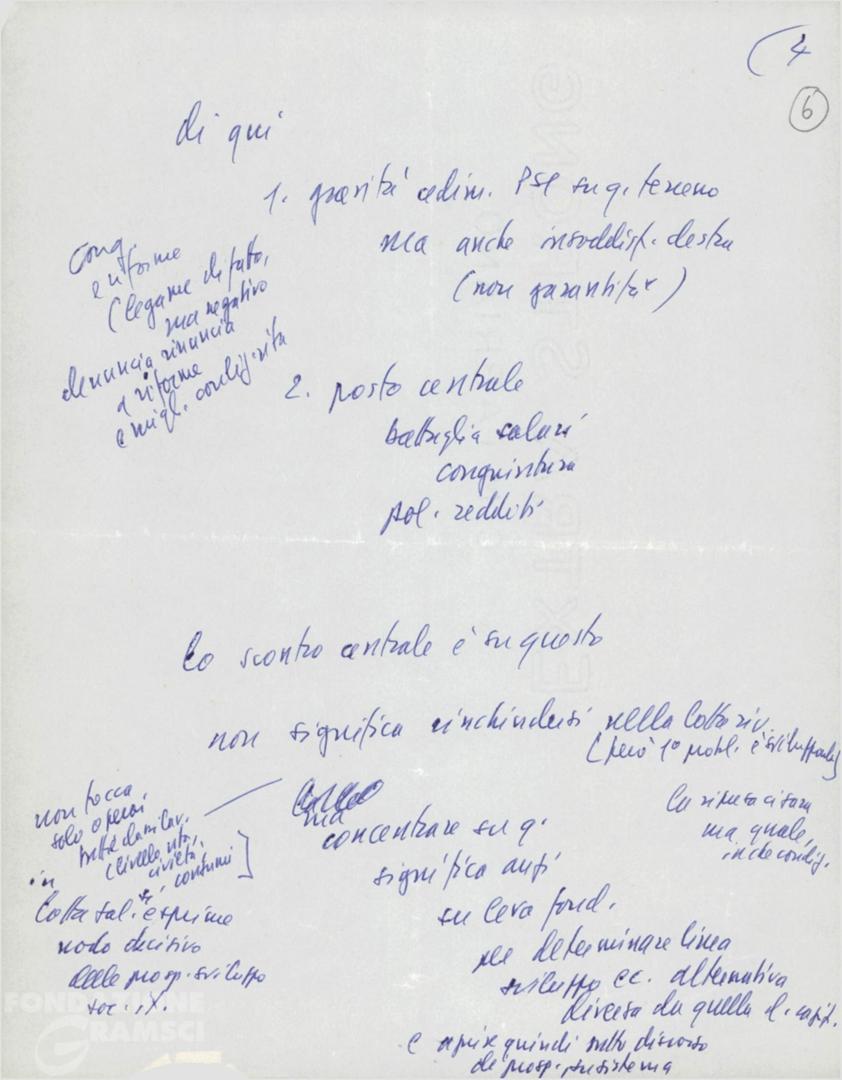 (4
6
di qui
1. gravità cedim. PSI su q. terreno
ma anche insoddisf. destra
(non garantita)
cong.
e riforme
(legame di fatto,
ma negativo
denuncia rinuncia
a riforme
e migl. condiz. vita
2. posto centrale
battaglia salari
congiuntura
pol. redditi
Lo scontro centrale è su questo
non significa rinchiudersi nella lotta riv.
(però 1° probl. è svilupparla)
La ripresa ci sarà
ma quale,
in che condiz.
ma
concentrare su q.
significa anzi
su leva fond.
per determinare linea
sviluppo ec. alternativa
diversa da quella d. capit.
e aprire quindi tutto discorso
di prosp. su sistema
non tocca
solo operai
tutte da lav.
(livello vita,
civiltà,
consumi
in
lotta sal. si esprime
nodo decisivo
delle prosp. sviluppo
soc. it.
FONDAZIONE
GRAMSCI